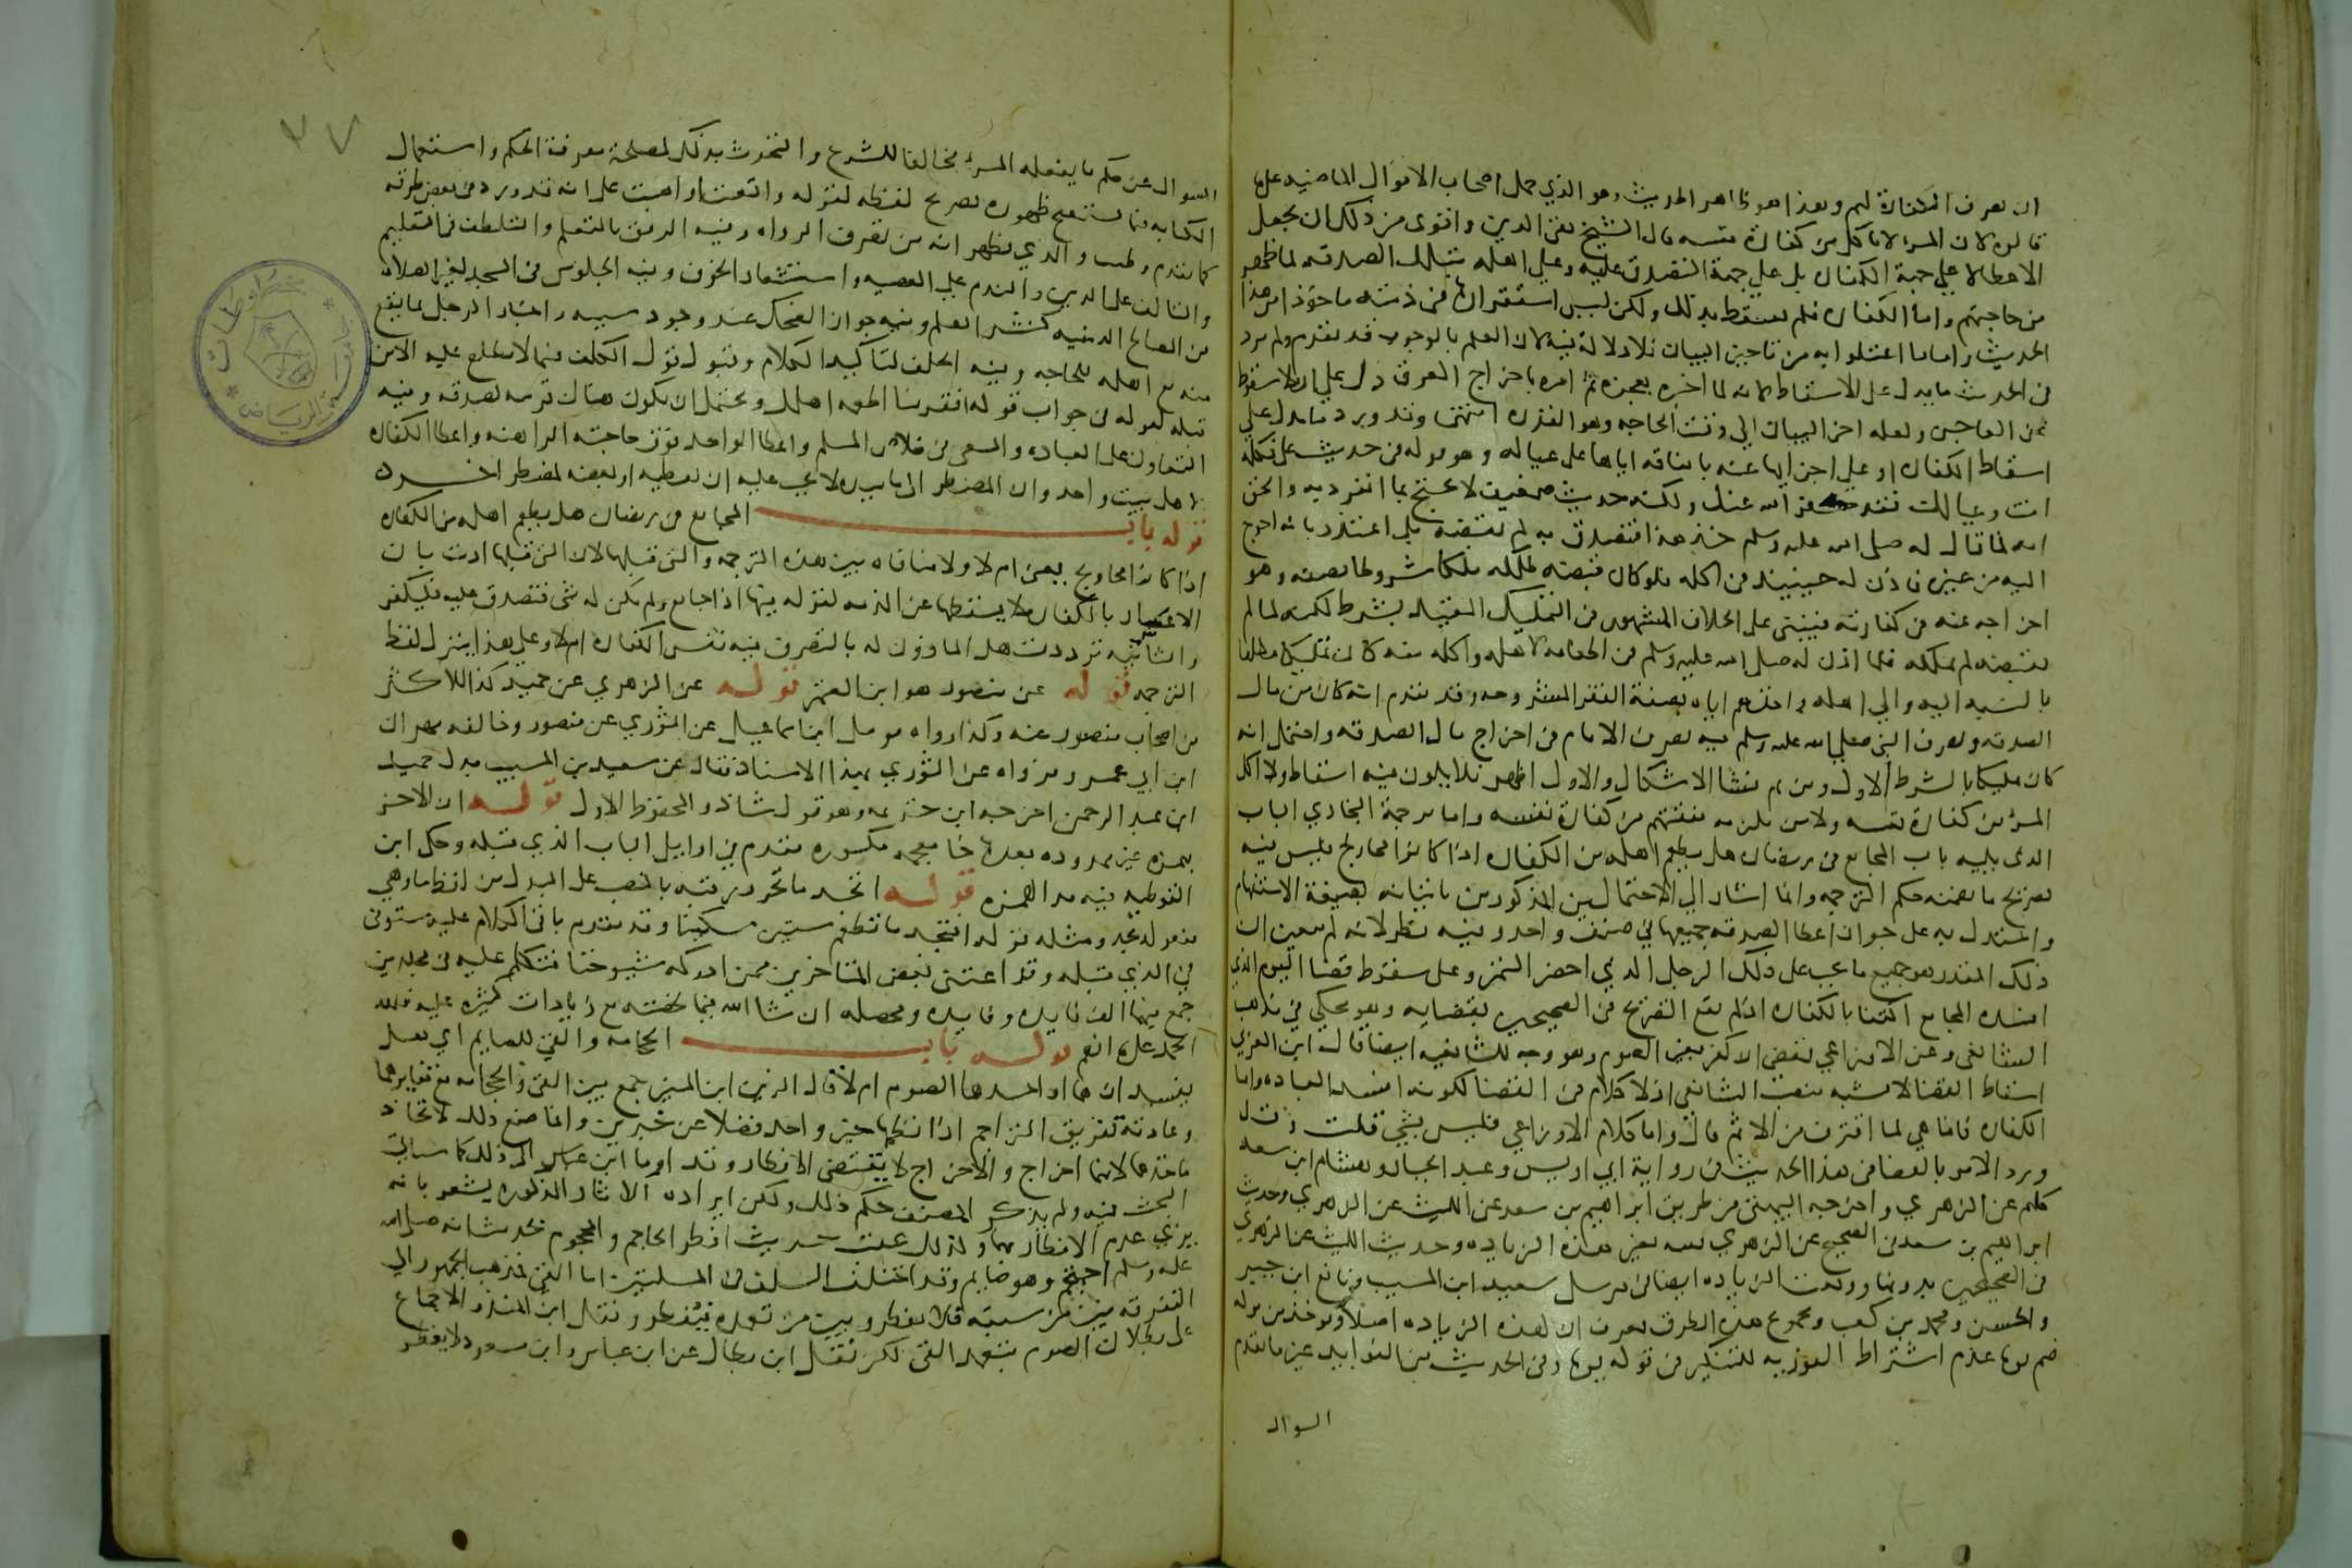 ان تصرف الكفارة لهم وهذا هو ظاهر الحديث وهو الذي حمل اصحاب الاقوال الماضية على ما
قالوه لان المرء لا ياكل من كفارة نفسه قال الشيخ تقي الدين واقوى من ذلك ان يجعل
الاعطا لا على جهة الكفارة بل على جهة التصدق عليه وعلى اهله بتلك الصدقه لما ظهر
من حاجتهم واما الكفارة فلم تسقط بذلك ولكن ليس استقرارها في ذمته ماخوذا من هذا
الحديث واما ما اعتلوا به من تاخير البيان فلا دلالة فيه لان العلم بالوجوب قد تقدم ولم يرد
في الحديث ما يدل على الاسقاط لانه لما اخبره بعجزه ثم امره باخراج العرق دل على ان لا سقوط
عن العاجز ولعله اخر البيان الى وقت الحاجه وهو القدره انتهى وقد ورد ما يدل على
اسقاط الكفاره او على اجزايها عنه بانفاقه اياها على عياله وهو قوله في حديث علي فكله
انت وعيالك فقد كفر الله عنك ولكنه حديث ضعيف لا يحتج بما انفرد به والحق
انه لما قال له صلى الله عليه وسلم خذ هذا فتصدق به لم يقبضه بل اعتذر بانه احوج
اليه من غيره فاذن له حينيذ في اكله فلو كان قبضه لملكه ملكا مشروطا بصفه وهو
اخراجه عنه في كفارته فينبني على الخلاف المشهور في التمليك المقيد بشرط لكنه لما لم
يقبضه لم يملكه فلما اذن له صلى الله عليه وسلم في اطعامه لاهله واكله منه كان تمليكا مطلقا
بالنسبه اليه والى اهله واخذهم اياه بصفة الفقر المشروحه وقد تقدم انه كان من مال
الصدقه وتصرف النبي صلى الله عليه وسلم فيه تصرف الامام في اخراج مال الصدقه واحتمل انه
كان تمليكا بالشرط الاول ومن ثم نشا الاشكال والاول اظهر فلا يكون فيه اسقاط ولا اكل
المرء من كفارة نفسه ولا من يلزمه نفقتهم من كفارة نفسه واما ترجمة البخاري الباب
الذي يليه باب المجامع في رمضان هل يطعم اهله من الكفاره اذا كانوا محاويج فليس فيه
تصريح بما تضمنه حكم الترجمه وانما اشار الى الاحتمالين المذكورين باتيانه بصيغة الاستفهام
واستدل به على جواز اعطا الصدقه جميعها في صنف واحد وفيه نظر لانه لم يتعين ان
ذلك القدر هو جميع ما يجب على ذلك الرجل الذي احضر التمر وعلى سقوط قضا اليوم الذي
افسده المجامع اكتفا بالكفاره اذ لم يقع التصريح في الصحيحين بقضايه وهو محكي في مذهب
الشافعي وعن الاوزاعي يقضي ان كفر بغير الصوم وهو وجه للشافعيه ايضا قال ابن العربي
اسقاط القضا لا يشبه منصب الشافعي اذ لا كلام في القضا لكونه افسد العباده واما
الكفاره فانما هي لما اقترف من الاثم قال واما كلام الاوزاعي فليس بشي قلت وقد
ورد الامر بالقضا في هذا الحديث في رواية ابي اويس وعبد الجبار وهشام ابن سعد
كلهم عن الزهري واخرجه البيهقي من طريق ابراهيم بن سعد عن الليث عن الزهري وحديث
ابراهيم بن سعد في الصحيح عن الزهري نفسه بغير هذه الزياده وحديث الليث عن الزهري
في الصحيحين بدونها ووقعت الزياده ايضا في مرسل سعيد ابن المسيب ونافع ابن جبير
والحسن ومحمد بن كعب وبمجموع هذه الطرق تعرف ان لهذه الزياده اصلا ويوخذ من قوله
صم يوما عدم اشتراط الفوريه للتنكير في قوله يوما وفي الحديث من الفوايد غير ما تقدم
السوال
٧٧
السوال عن حكم ما يفعله المرء مخالفا للشرع والتحدث بذلك لمصلحة معرفة الحكم واستعمال
الكنايه فيما يستقبح ظهوره بصريح لفظه لقوله واقعت او اصبت على انه قد ورد في بعض طرقه
كما تقدم وطيت والذي يظهر انه من تصرف الرواه وفيه الرفق بالمتعلم والتلطف في التعليم
والتالف على الدين والندم على المعصيه واستشعار الخوف وفيه الجلوس في المسجد لغير الصلاة
من المصالح الدينيه كنشر العلم وفيه جواز الضحك عند وجود سببه واخبار الرجل بما يقع
منه مع اهله للحاجه وفيه الحلف لتاكيد الكلام وقبول قول المكلف فيما لا يطلع عليه الا من
قبله لقوله في جواب قوله افقر منا اطعمه اهلك ويحتمل ان يكون هناك قرينه لصدقه وفيه
التعاون على العباده والسعي في خلاص المسلم واعطا الواحد فوق حاجته الراهنه واعطا الكفاره
لاهل بيت واحد وان المضطر الى ما بيده لا يجب عليه ان يعطيه او بعضه لمضطر اخر
قوله باب المجامع في رمضان هل يطعم اهله من الكفاره
اذا كانوا محاويج يعني ام لا ولا منافاه بين هذه الترجمه والتي قبلها لان التي قبلها اذنت بان
الاعسار بالكفاره لا يسقطها عن الذمه لقوله فيها اذا جامع ولم يكن له شي فتصدق عليه فليكفر
والثانيه ترددت هل الماذون له بالتصرف فيه نفس الكفاره ام لا وعلى هذا يتنزل لفظ
الترجمه قوله عن منصور هو ابن المعتمر قوله عن الزهري عن حميد كذا للاكثر
من اصحاب منصور عنه وكذا رواه مومل ابن اسماعيل عن الثوري عن منصور وخالفه مهران
ابن ابي عمر ورواه عن الثوري بهذا الاسناد فقال عن سعيد بن المسيب بدل حميد
ابن عبد الرحمن اخرجه ابن خزيمه وهو قول شاذ والمحفوظ الاول قوله ان الاخر
بهمزه غير ممدوده بعدها خا معجمه مكسوره تقدم في اوايل الباب الذي قبله وحكى ابن
القوطيه فيه مد الهمزه قوله اتجد ما تحرر رقبه بالنصب على البدل من لفظ ما وهي
مفعوله تجد ومثله قوله افتجد ما تطعم ستين مسكينا وقد تقدم باقي الكلام عليه مستوفى
في الذي قبله وقد اعتنى بعض المتاخرين ممن ادركه شيوخنا فتكلم عليه في مجلدين
جمع فيهما الف فايده وفايده ومحصله ان شا الله فيما لخصته مع زيادات كثيره عليه فلله
الحمد على ما انعم قوله باب الحجامه والقي للصايم اي هل
يفسدان هما او احدهما الصوم ام لا قال الزين ابن المنير جمع بين القي والحجامه مع تغايرهما
وعادته تفريق التراجم اذا نظمها خبر واحد فضلا عن خبرين وانما صنع ذلك لاتحاد
ماخذهما لانهما اخراج والاخراج لا يقتضي الافطار وقد اوما ابن عباس الى ذلك كما سياتي
البحث فيه ولم يذكر المصنف حكم ذلك ولكن ايراده الاثار المذكوره يشعر بانه
يرى عدم الافطار بهما ولذلك عقب حديث افطر الحاجم والمحجوم بحديث انه صلى الله
عليه وسلم احتجم وهو صايم وقد اختلف السلف في المسلتين اما القي فذهب الجمهور الى
التفرقه بين من سبقه فلا يفطر وبين من تعمده فيفطر ونقل ابن المنذر الاجماع
على بطلان الصوم بتعمد القي لكن نقل ابن بطال عن ابن عباس وابن مسعود لا يفطر